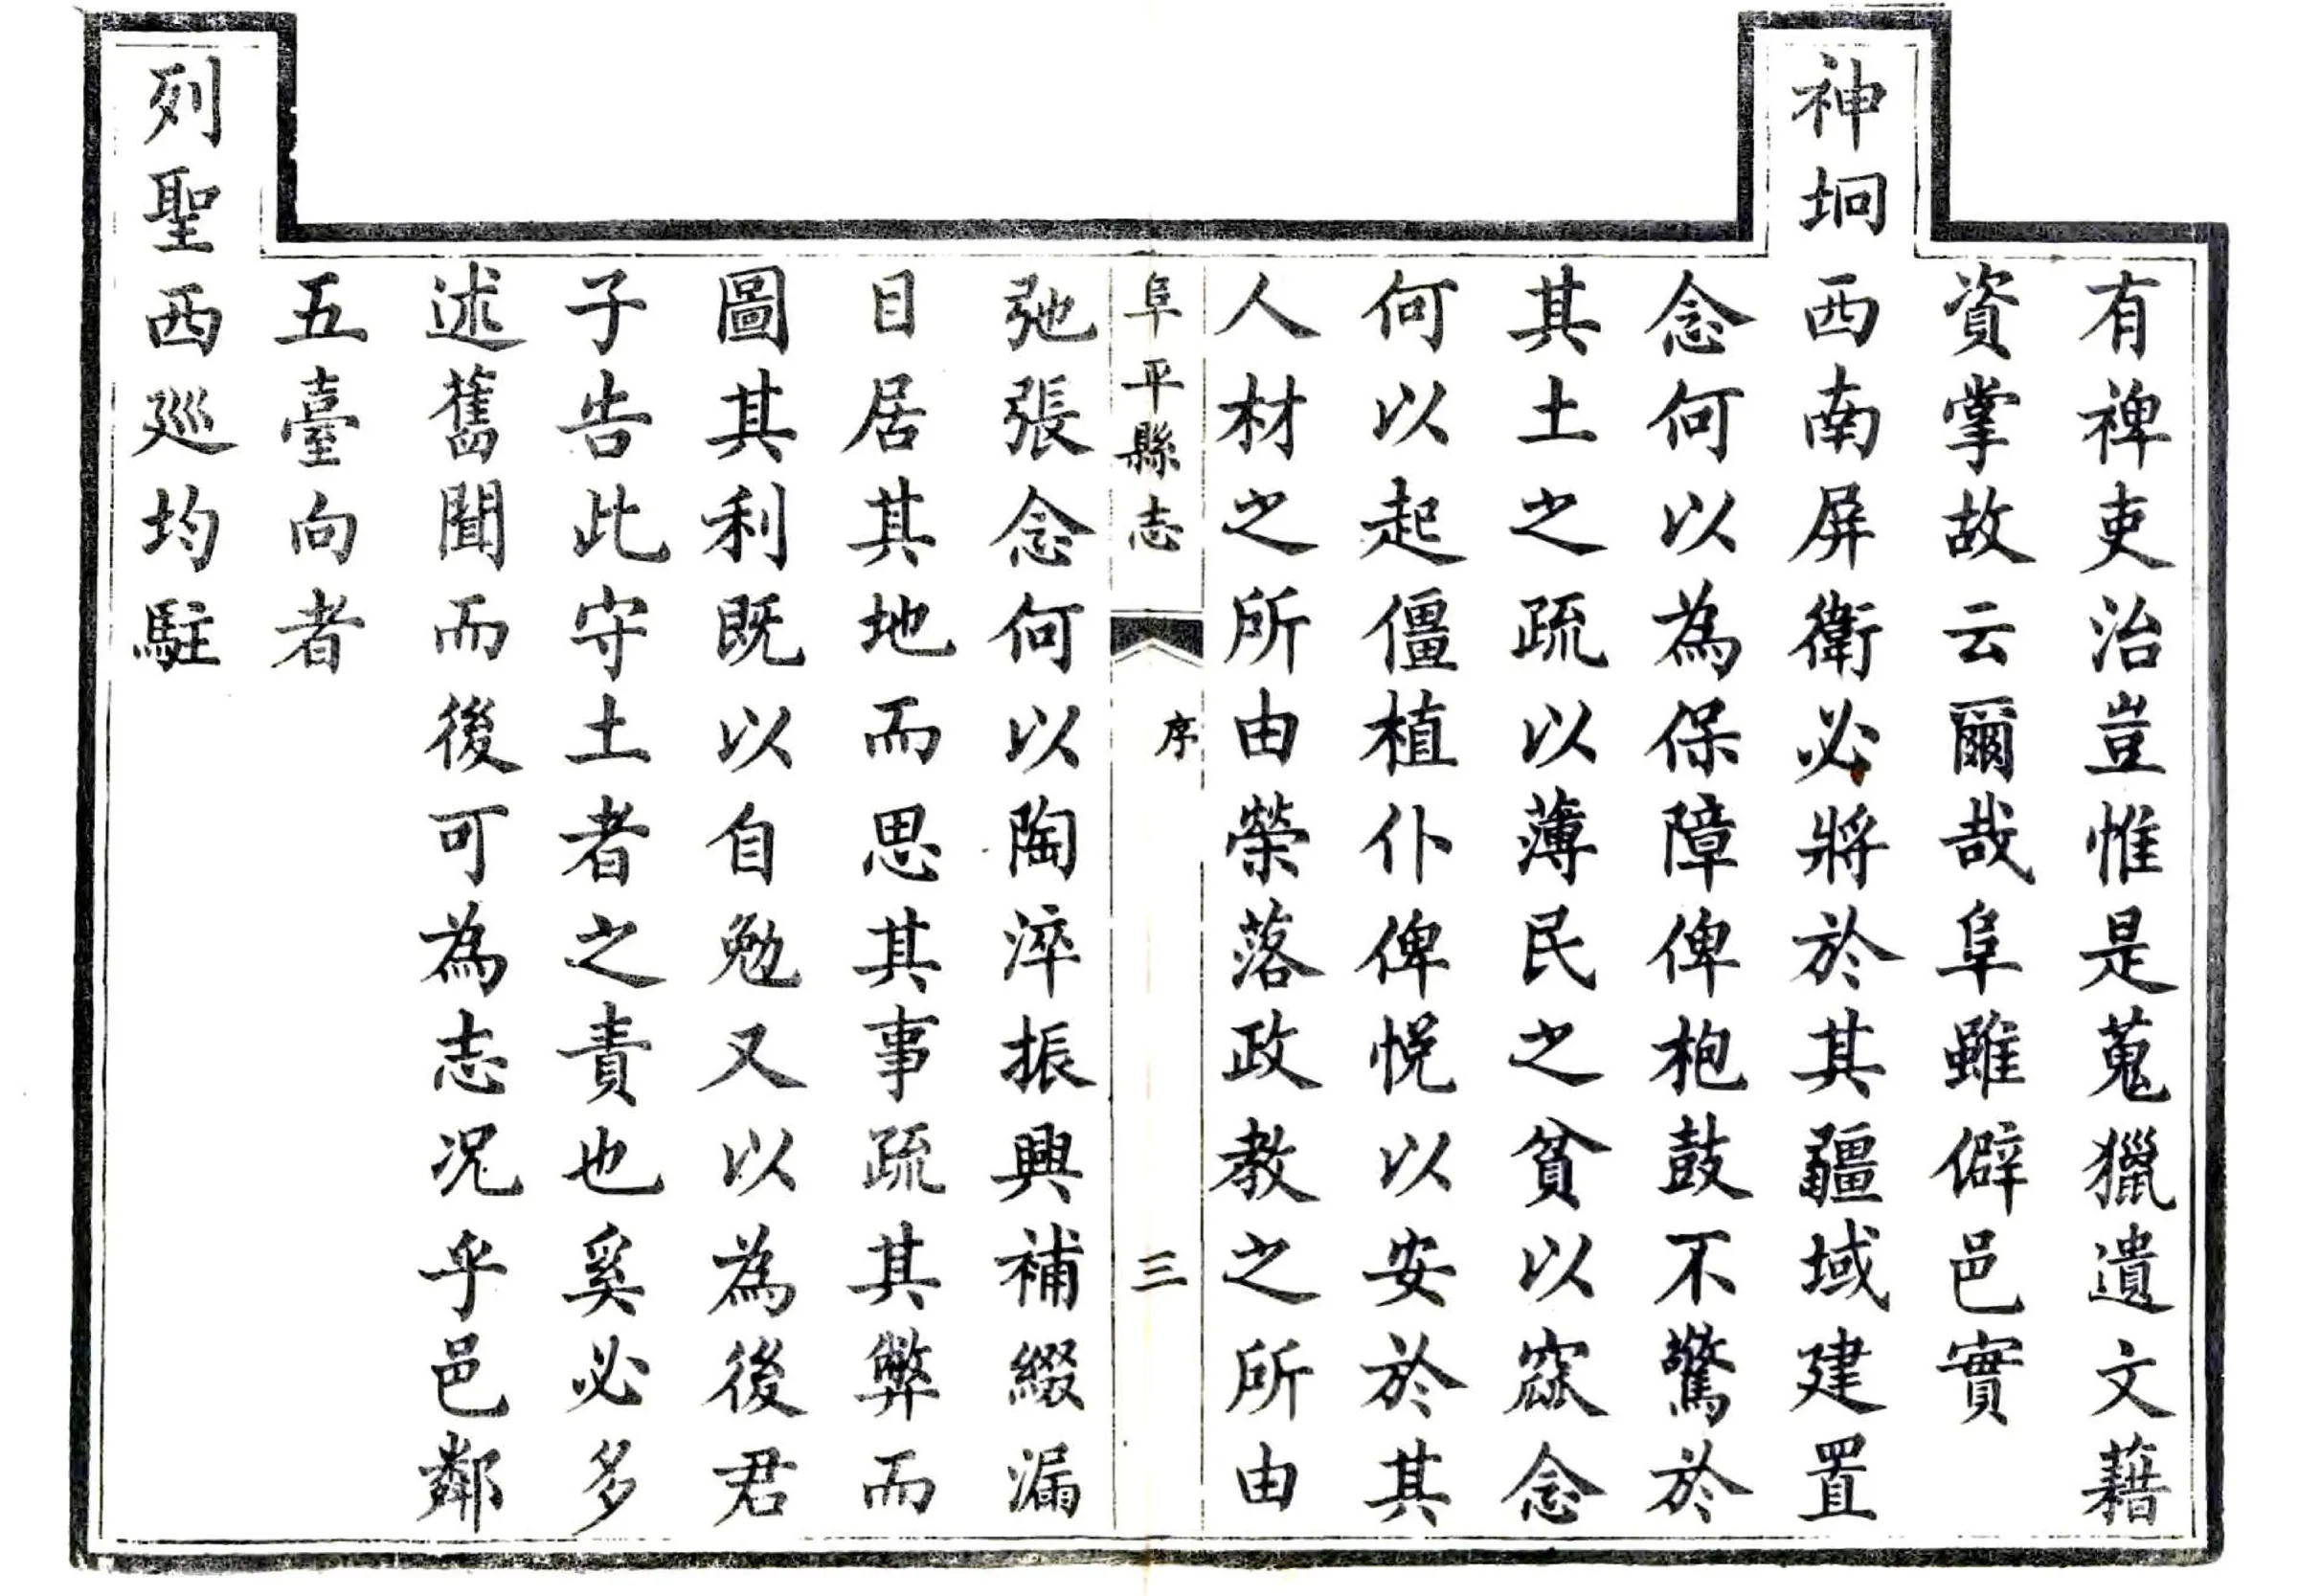 有裨吏治豈惟是蒐獵遺文藉
資掌故云爾哉阜雖僻邑實
神坰西南屏衛必將於其疆域建置
念何以為保障俾枹鼓不驚於
其土之疏以薄民之貧以窳念
何以起僵植仆俾悅以安於其
人材之所由榮落政教之所由
阜平縣志 序 三
弛張念何以陶淬振興補綴漏
目居其地而思其事疏其弊而
圖其利既以自勉又以為後君
子告此守土者之責也奚必多
述舊聞而後可為志况乎邑鄰
五臺向者
列聖西廵均駐